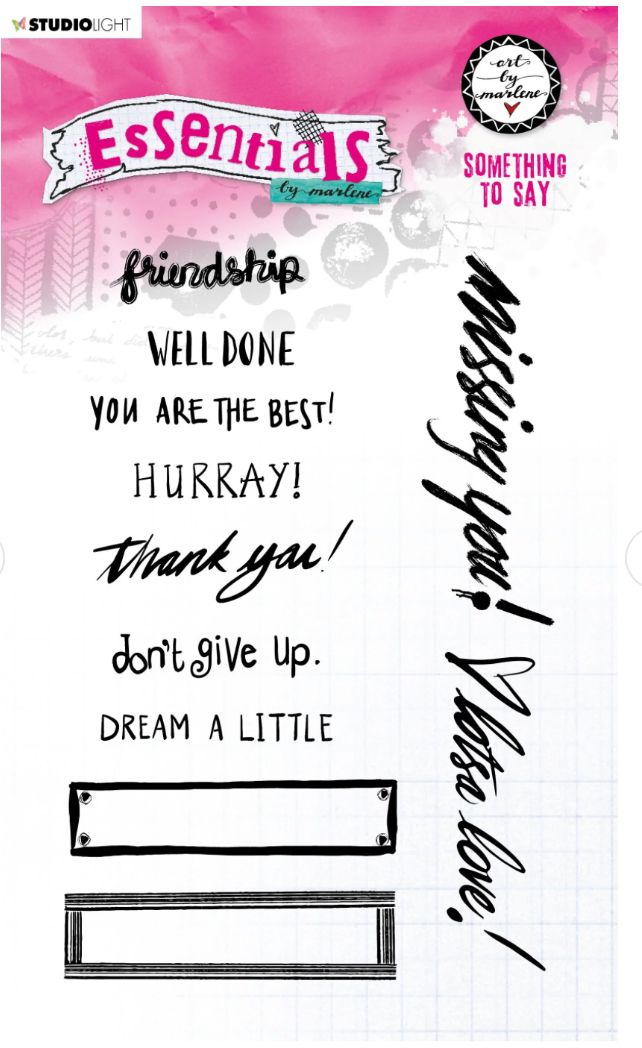 STUDIOLIGHT
art
by
marlene
Essentials
by marlene
SOMETHING
TO SAY
friendship
WELL DONE
YOU ARE THE BEST!
HURRAY!
thank you!
don't give up.
DREAM A LITTLE
Missing you!
lotsa love!